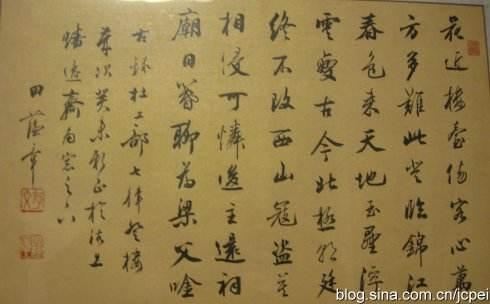 花近樓臺傷客心萬
方多難此登臨錦江
春色来天地玉壘浮
雲變古今北極朝廷
終不改西山寇盜莫
相侵可憐後主還祠
廟日暮聊為梁父吟
右錄杜工部七律登樓
歲次癸未新正於海上
齋南窗之下
田蘊章
blog.sina.com.cn/jcpei